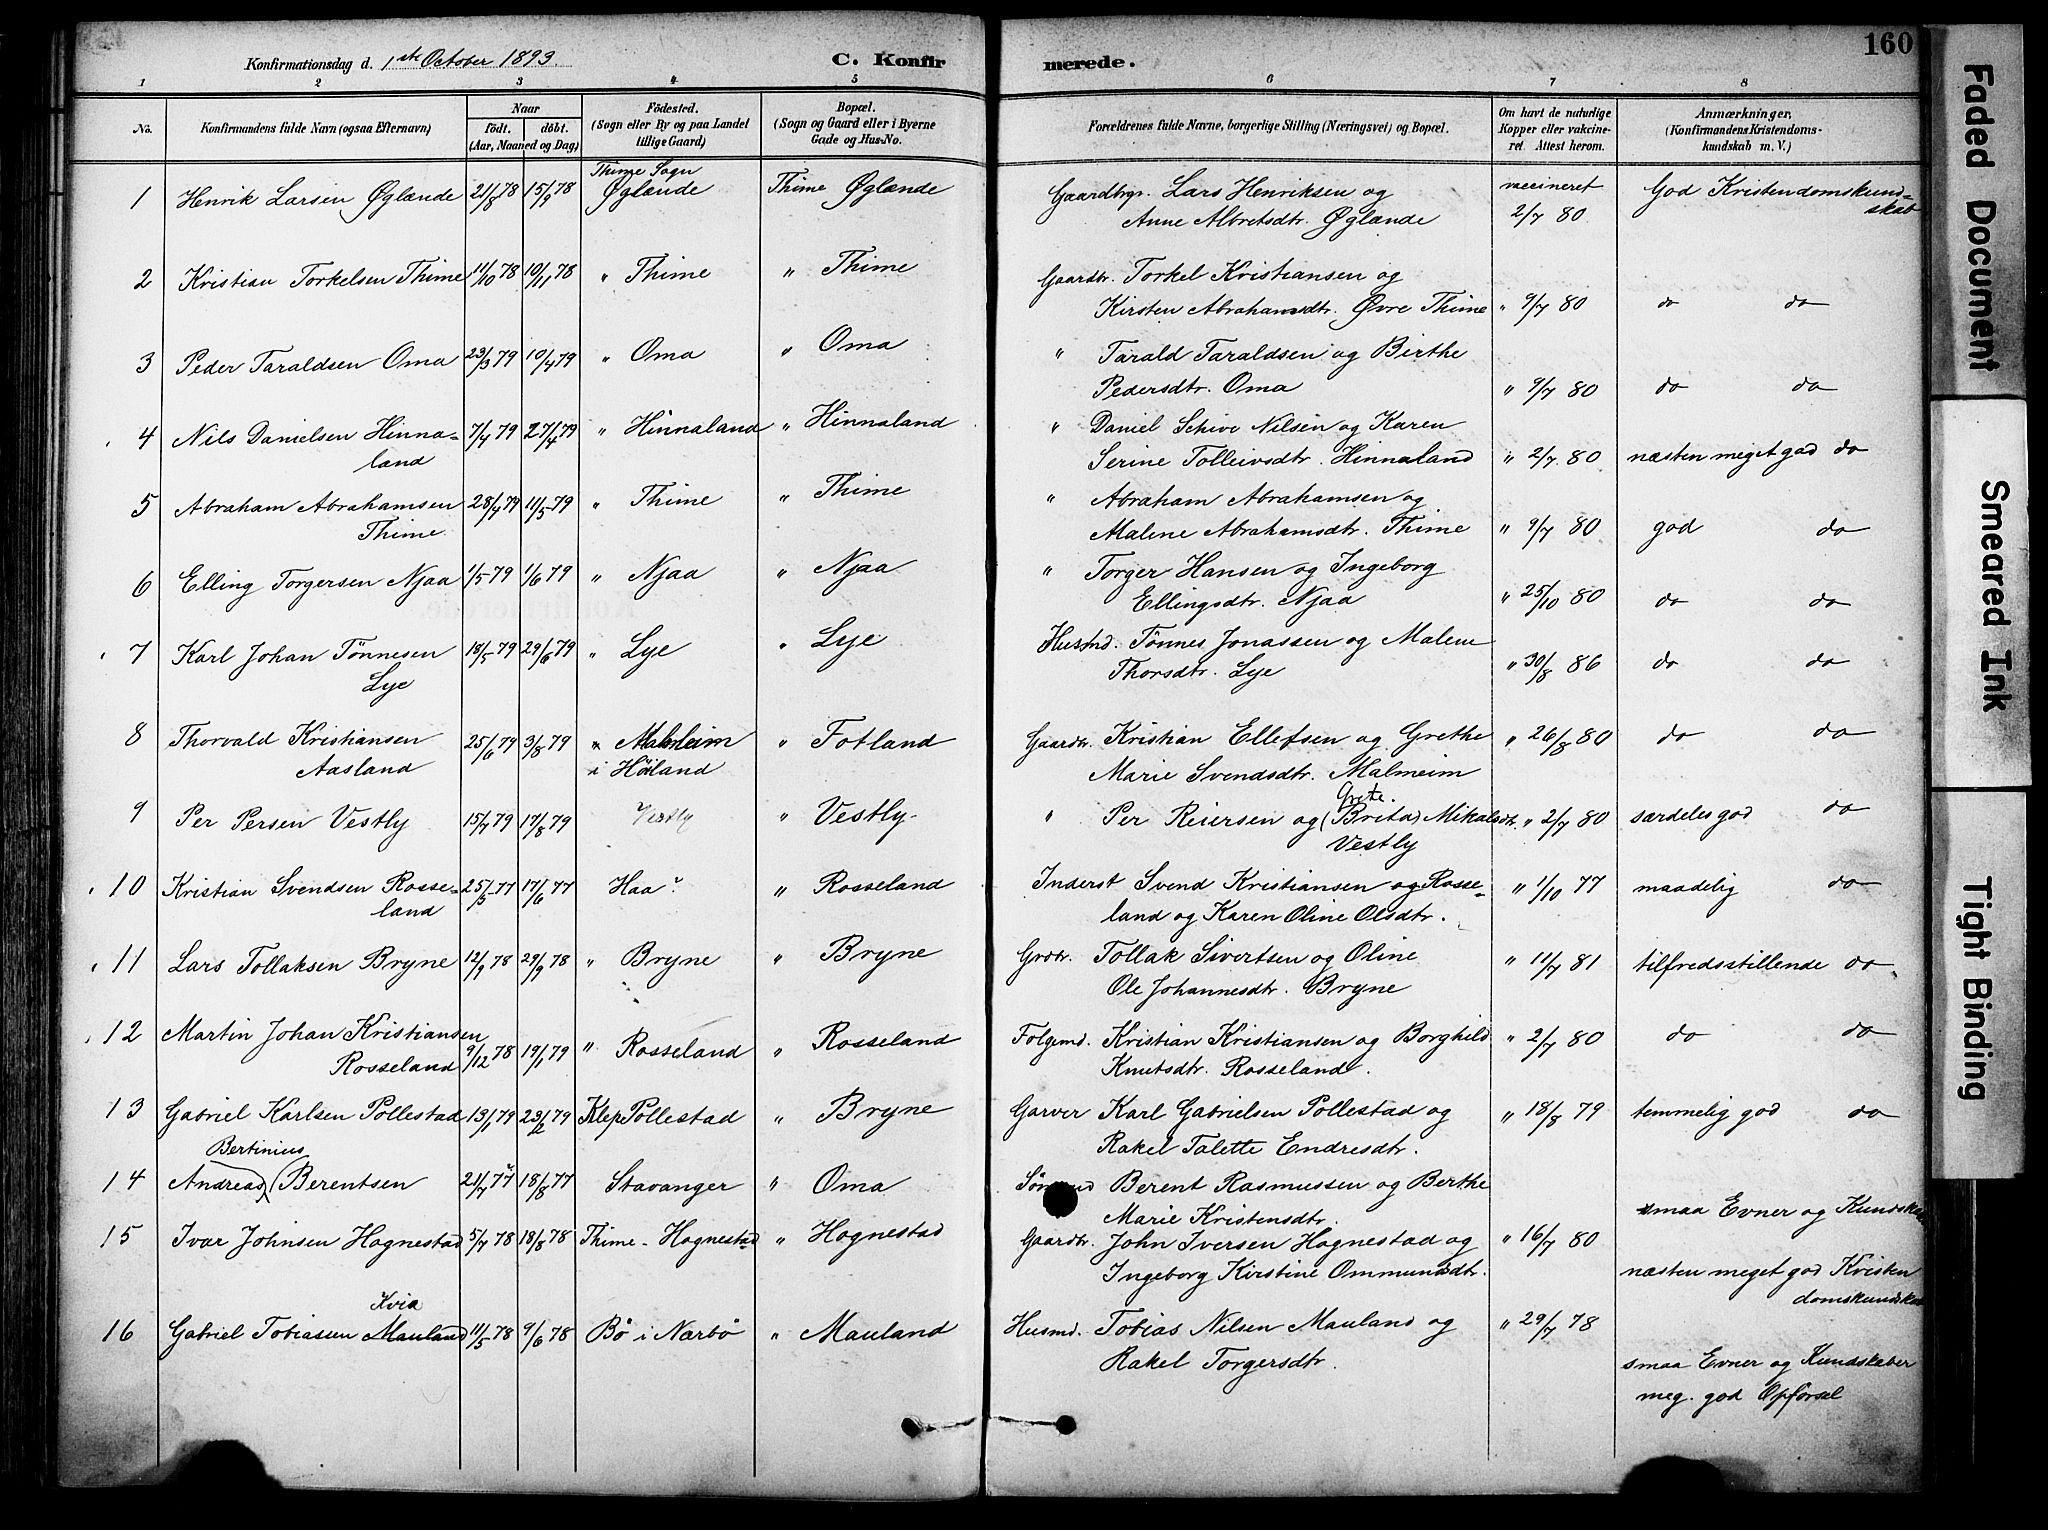 Konfirmationsdag d. 1ste October 1893. C. Konfir merede. 160
1 2 3 4 5 6 7 8
No. Konfirmandens fulde Navn (ogsaa Efternavn) Naar født. døbt. (Aar, Maaned og Dag) Fødested. (Sogn eller By og paa Landet tillige Gaard) Bopæl. (Sogn og Gaard eller i Byerne Gade og Hus-No. Forældrenes fulde Navne, borgerlige Stilling (Næringsvei) og Bopæl. Om havt de naturlige Kopper eller vakcineret. Attest herom. Anmærkninger, (Konfirmandens Kristendomskundskab m. V.)
1 Henrik Larsen Øglænde 21/8 78 15/9 78 Thime Sogn Øglænde Thime Øglænde Gaardbrgr. Lars Henriksen og vaccineret God Kristendomskund-
Anne Albretsdtr. Øglænde 2/7 80 skab
2 Kristian Torkelsen Thime 11/10 78 10/11 78 " Thime " Thime Gaardbr. Torkel Kristiansen og
Kirsten Abrahamsdtr. Øvre Thime " 9/7 80 do do
3 Peder Taraldsen Oma 23/3 79 10/4 79 " Oma " Oma " Tarald Taraldsen og Birthe
Pedersdtr. Oma " 9/7 80 do do
4 Nils Danielsen Hinna- 7/4 79 27/4 79 " Hinnaland " Hinnaland " Daniel Schive Nilsen og Karen
land Serine Tolleivsdtr. Hinnaland " 2/7 80 næsten meget god do
5 Abraham Abrahamsen 28/4 79 11/5 79 " Thime " Thime " Abraham Abrahamsen og
Thime Malene Abrahamsdtr. Thime " 9/7 80 god do
6 Elling Torgersen Njaa 1/5 79 1/6 79 " Njaa " Njaa " Torger Hansen og Ingeborg
Ellingsdtr. Njaa " 25/10 80 do do
7 Karl Johan Tønnesen 18/5 79 29/6 79 " Lye " Lye Husmd. Tønnes Jonassen og Malene
Lye Thorsdtr. Lye " 30/8 86 do do
8 Thorvald Kristiansen 25/6 79 3/8 79 Malmeim " Fotland Gaardbr. Kristian Ellefsen og Grethe " 26/8 80 do do
Aasland i Høiland Marie Svendsdtr. Malmeim
9 Per Persen Vestly 15/7 79 17/8 79 Vestly " Vestly " Per Reiersen og (Brita) Grete. Mikalsdtr. " 2/7 80 særdeles god do
Vestly
10 Kristian Svendsen Rosse- 25/5 77 17/6 77 Haa? " Rosseland Inderst Svend Kristiansen og Rosse- " 1/10 77 maadelig do
land land og Karen Oline Olsdtr.
11 Lars Tollaksen Bryne 12/9 78 29/9 78 " Bryne " Bryne Grdbr. Tollak Sivertsen og Oline " 11/7 81 tilfredsstillende do
Ole Johannesdtr. Bryne
12 Martin Johan Kristiansen " Rosseland Folgemd. Kristian Kristiansen og Borghild " 2/7 80 do do
Rosseland 9/12 78 19/1 79 " Rosseland Knutsdtr. Rosseland.
13 Gabriel Karlsen Pollestad 13/1 79 23/2 79 Klep Pollestad " Bryne Garver Karl Gabrielsen Pollestad og " 18/8 79 temmelig god do
Rakel Talette Endresdtr.
Bertinius
14 Andreas (Berentsen 21/7 77 18/8 77 Stavanger " Oma Berent Rasmussen og Berthe
Marie Kristensdtr. smaa Evner og
15 Ivar Johnsen Hognestad 5/7 78 18/8 78 Thime - Hognestad " Hognestad Gaardbr. John Iversen Hognestad og " 16/7 80
Ingeborg Kirstine Ommundsdtr. næsten meget god Kristen
Kvia
16 Gabriel Tobiassen Mauland 11/5 78 9/6 78 Bø i Nærbø " Mauland Husmd. Tobias Nilsen Mauland og " 29/7 78
Rakel Torgersdtr. smaa Evner og Kundskaber
meg. god Opførsel
Faded Document
Smeared Ink
Tight Binding